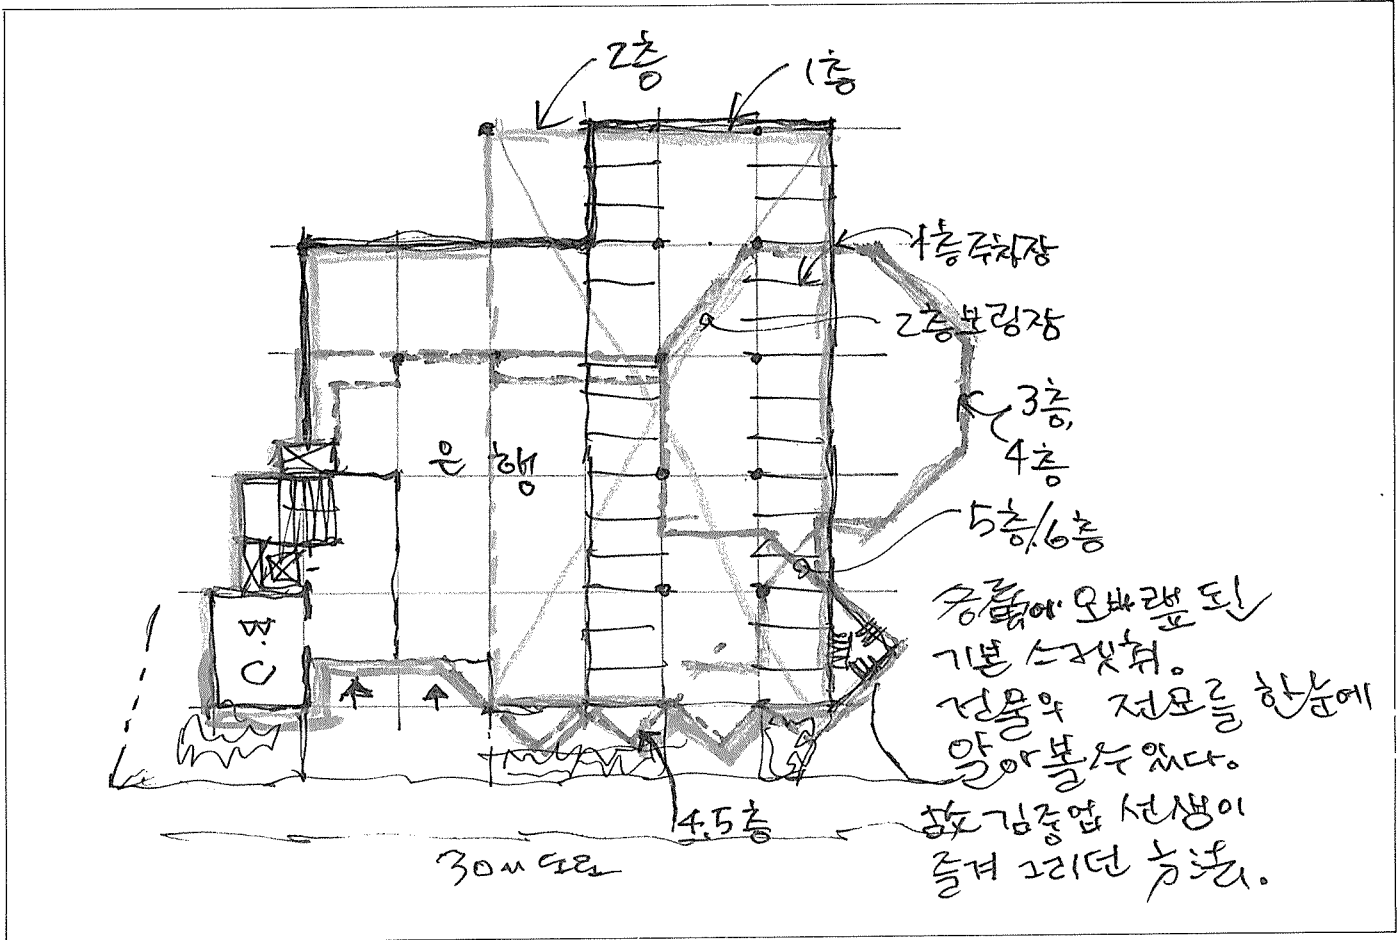 2층
1층
1층 주차장
2층 보링장
3층,
4층
은행
5층/6층
B.C
4,5층
30m 도로
오버랲 된
기본 스켓취.
건물의 전모를 한눈에
알아볼 수 있다.
故 김중업 선생이
즐겨 그리던 方法.